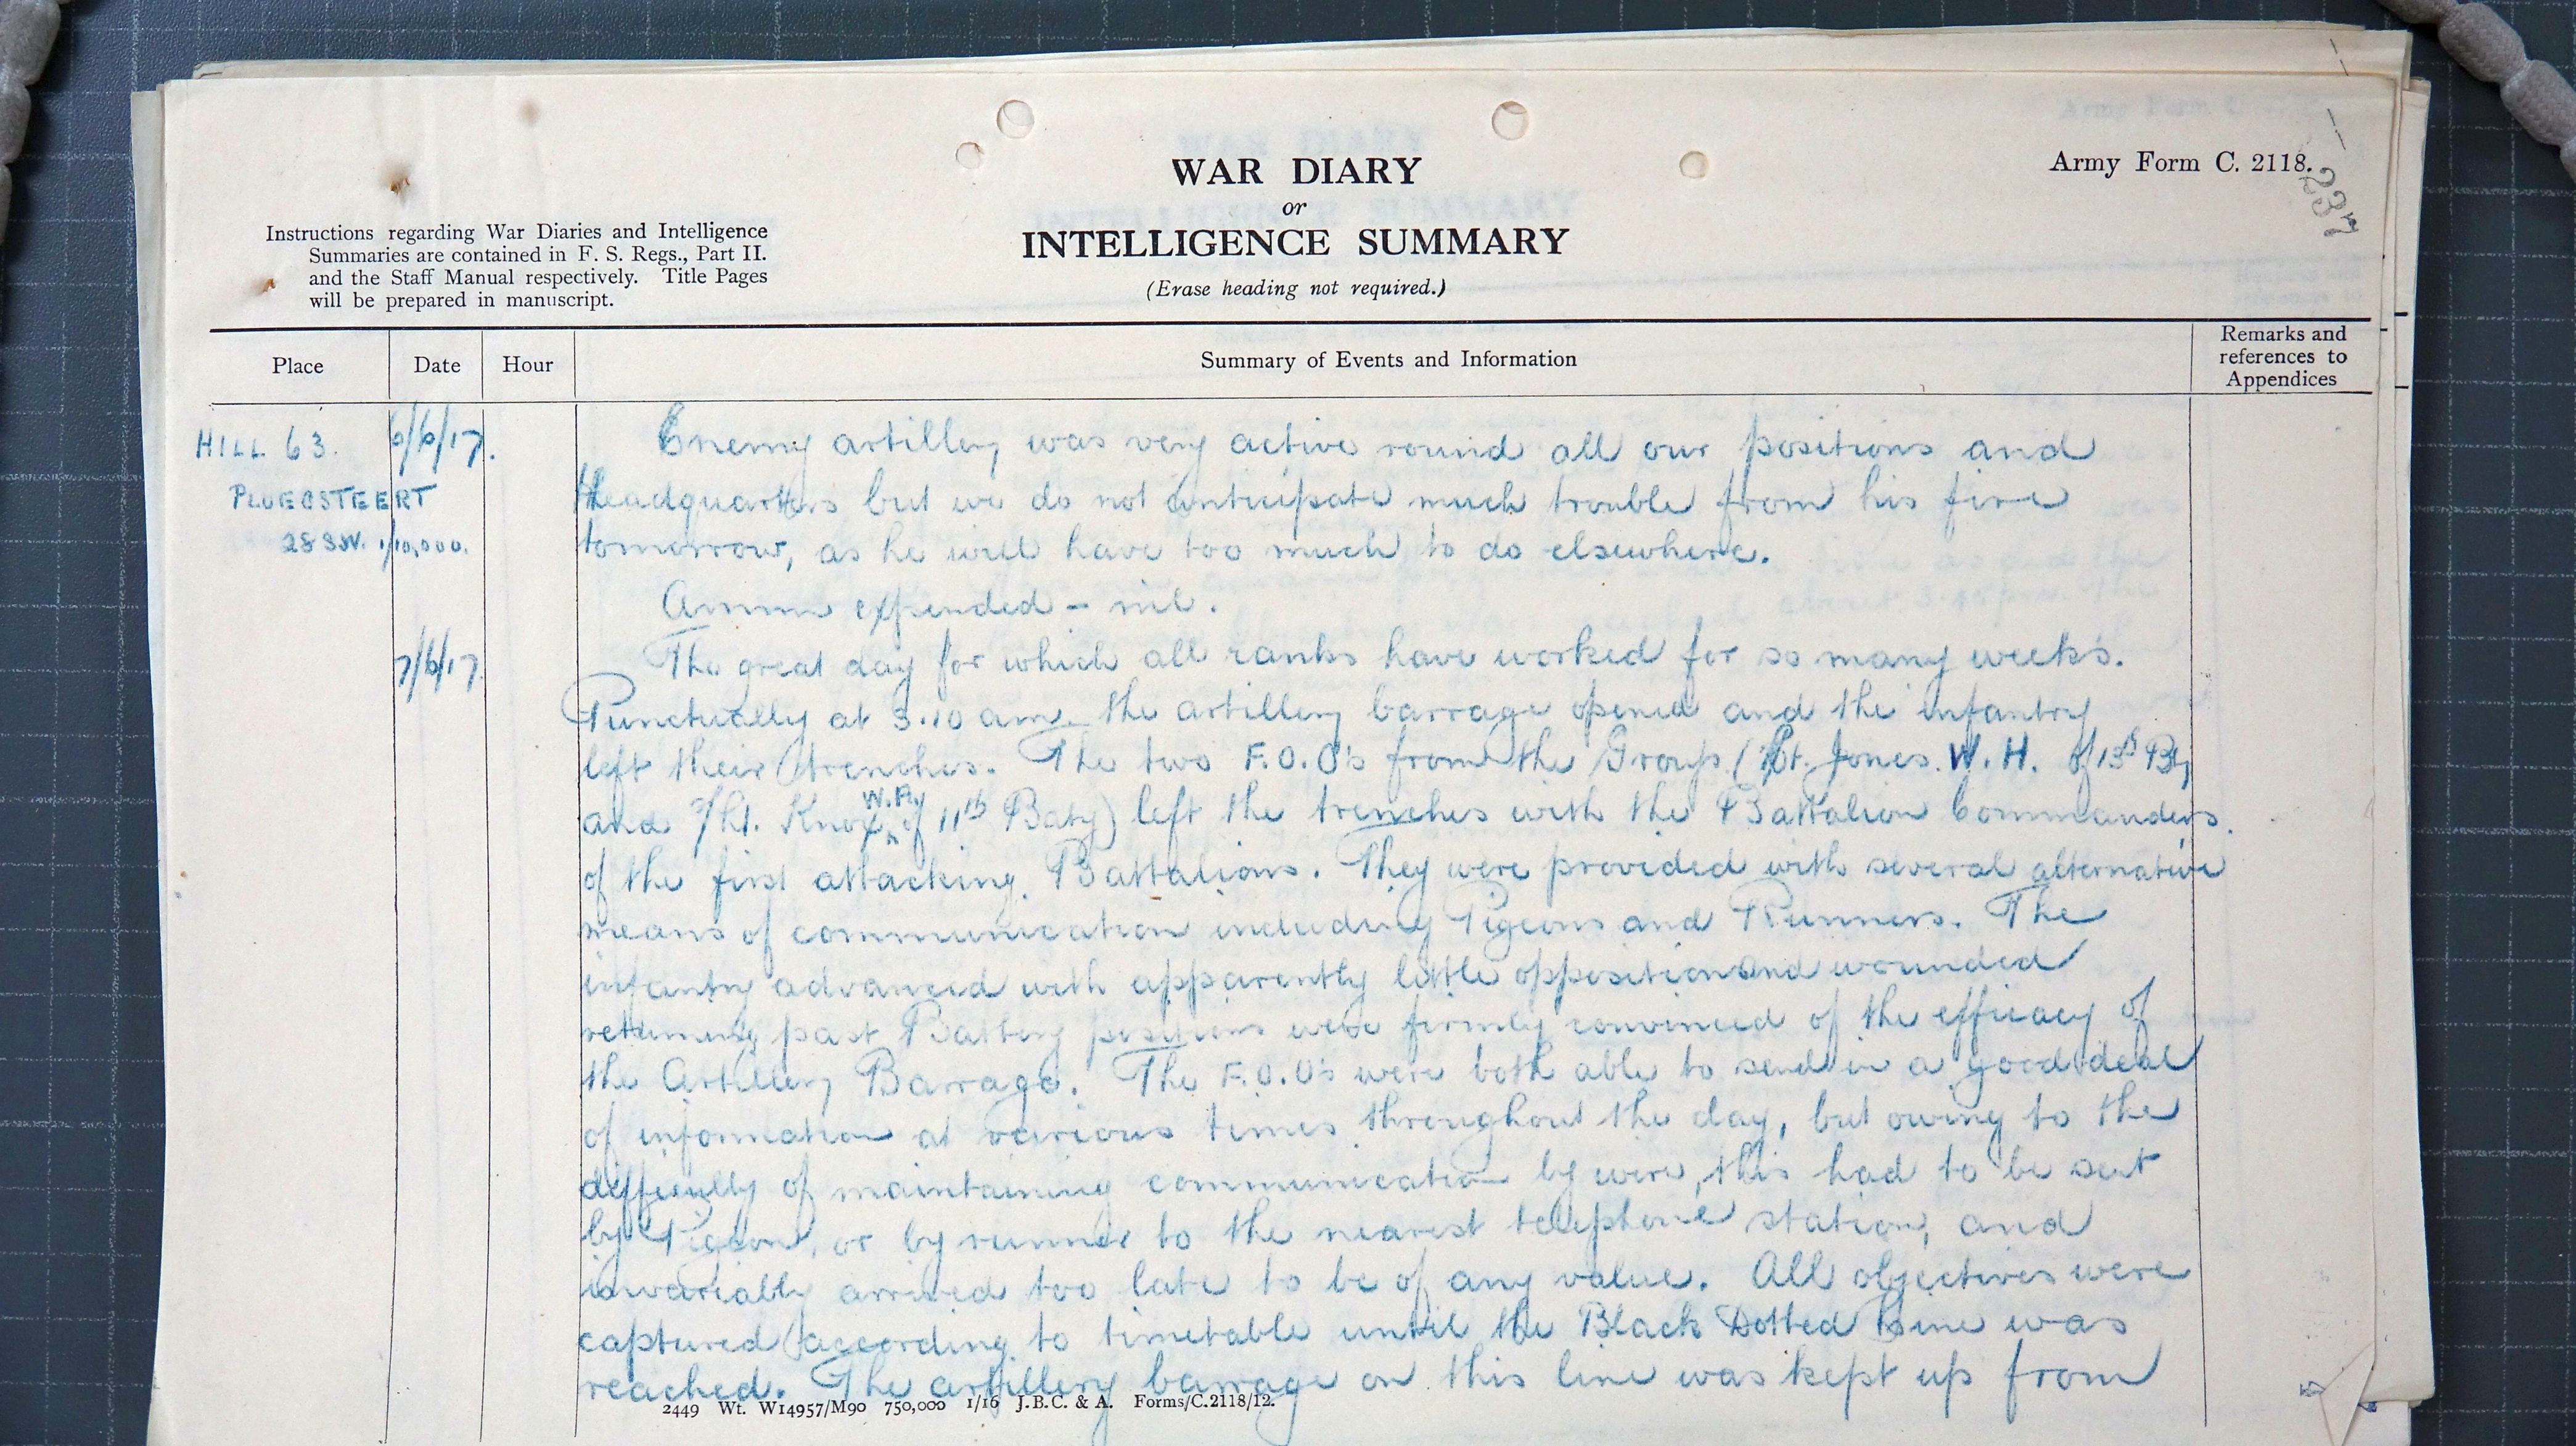 Army Form C. 2118.
237
WAR DIARY
or
INTELLIGENCE SUMMARY
(Erase heading not required.)
Instructions regarding War Diaries and Intelligence
Summaries are contained in F. S. Regs., Part II.
and the Staff Manual respectively. Title Pages
will be prepared in manuscript.
Place Date Hour Summary of Events and Information Remarks and
references to
Appendices
HILL 63. 6/6/17. Enemy artillery was very active round all our positions and
PLOEGSTEERT Headquarters but we do not anticipate much trouble from his fire
28 S.W. 1/10,000. tomorrow, as he will have too much to do elsewhere.
Ammn expended - nil.
7/6/17. The great day for which all ranks have worked for so many weeks.
Punctually at 3.10 am. the artillery barrage opened and the infantry
left their trenches. The two F.O.O's from the Group (Lt. Jones. W.H. of 13th Bty
and Lt. Knox W.A. of 11th Baty) left the trenches with the Battalion Commanders.
of the first attacking Battalions. They were provided with several alternative
means of communication including Pigeons and Runners. The
infantry advanced with apparently little opposition and wounded
returning past Battery positions were firmly convinced of the efficacy of
the Artillery Barrage. The F.O.O's were both able to send in a good deal
of information at various times throughout the day, but owing to the
difficulty of maintaining communication by wire, this had to be sent
by Pigeon, or by runner to the nearest telephone station, and
invariably arrived too late to be of any value. All objectives were
captured according to timetable until the Black Dotted Line was
reached. The artillery barrage on this line was kept up from
2449 Wt. W14957/M90 750,000 1/16 J.B.C. & A. Forms/C.2118/12.